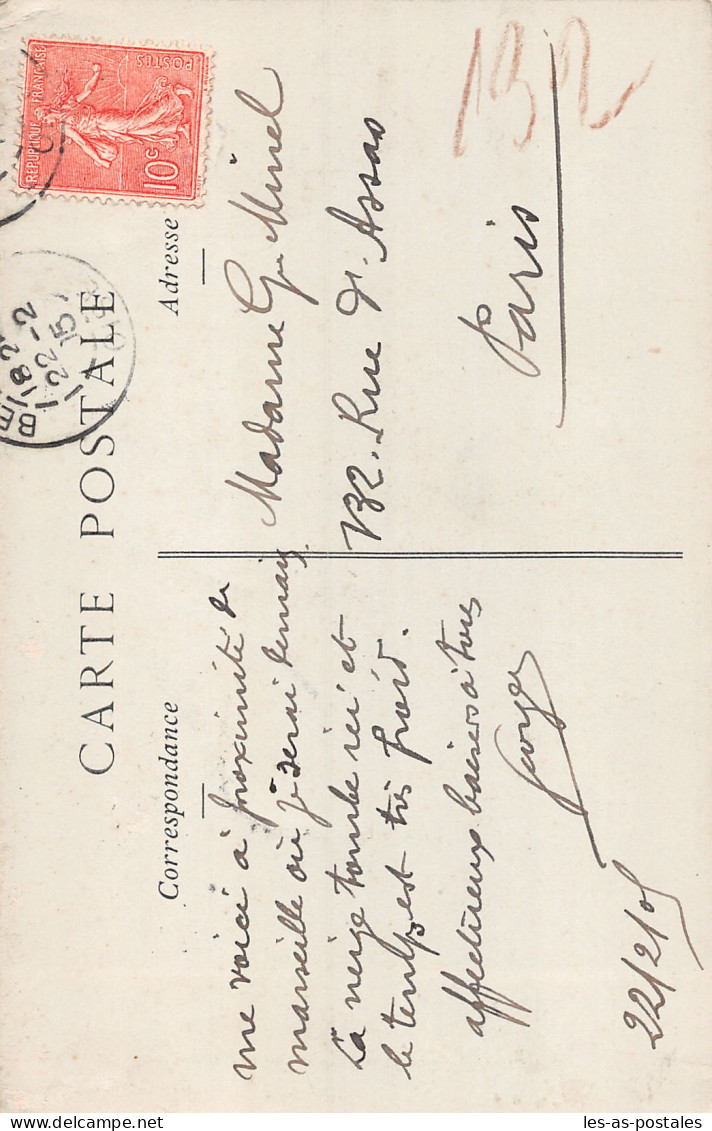 CARTE POSTALE
Correspondance
me voici à proximité de
marseille où je serai demain.
La neige tombe ici et
le temps est très froid.
affectueux baisers à tous
Georges
22/2/05
Adresse
Madame Minel
132. Rue d'Assas
Paris
132
RÉPUBLIQUE FRANÇAISE
POSTES
10 C
BE
18 2
22 -2
les-as-postales